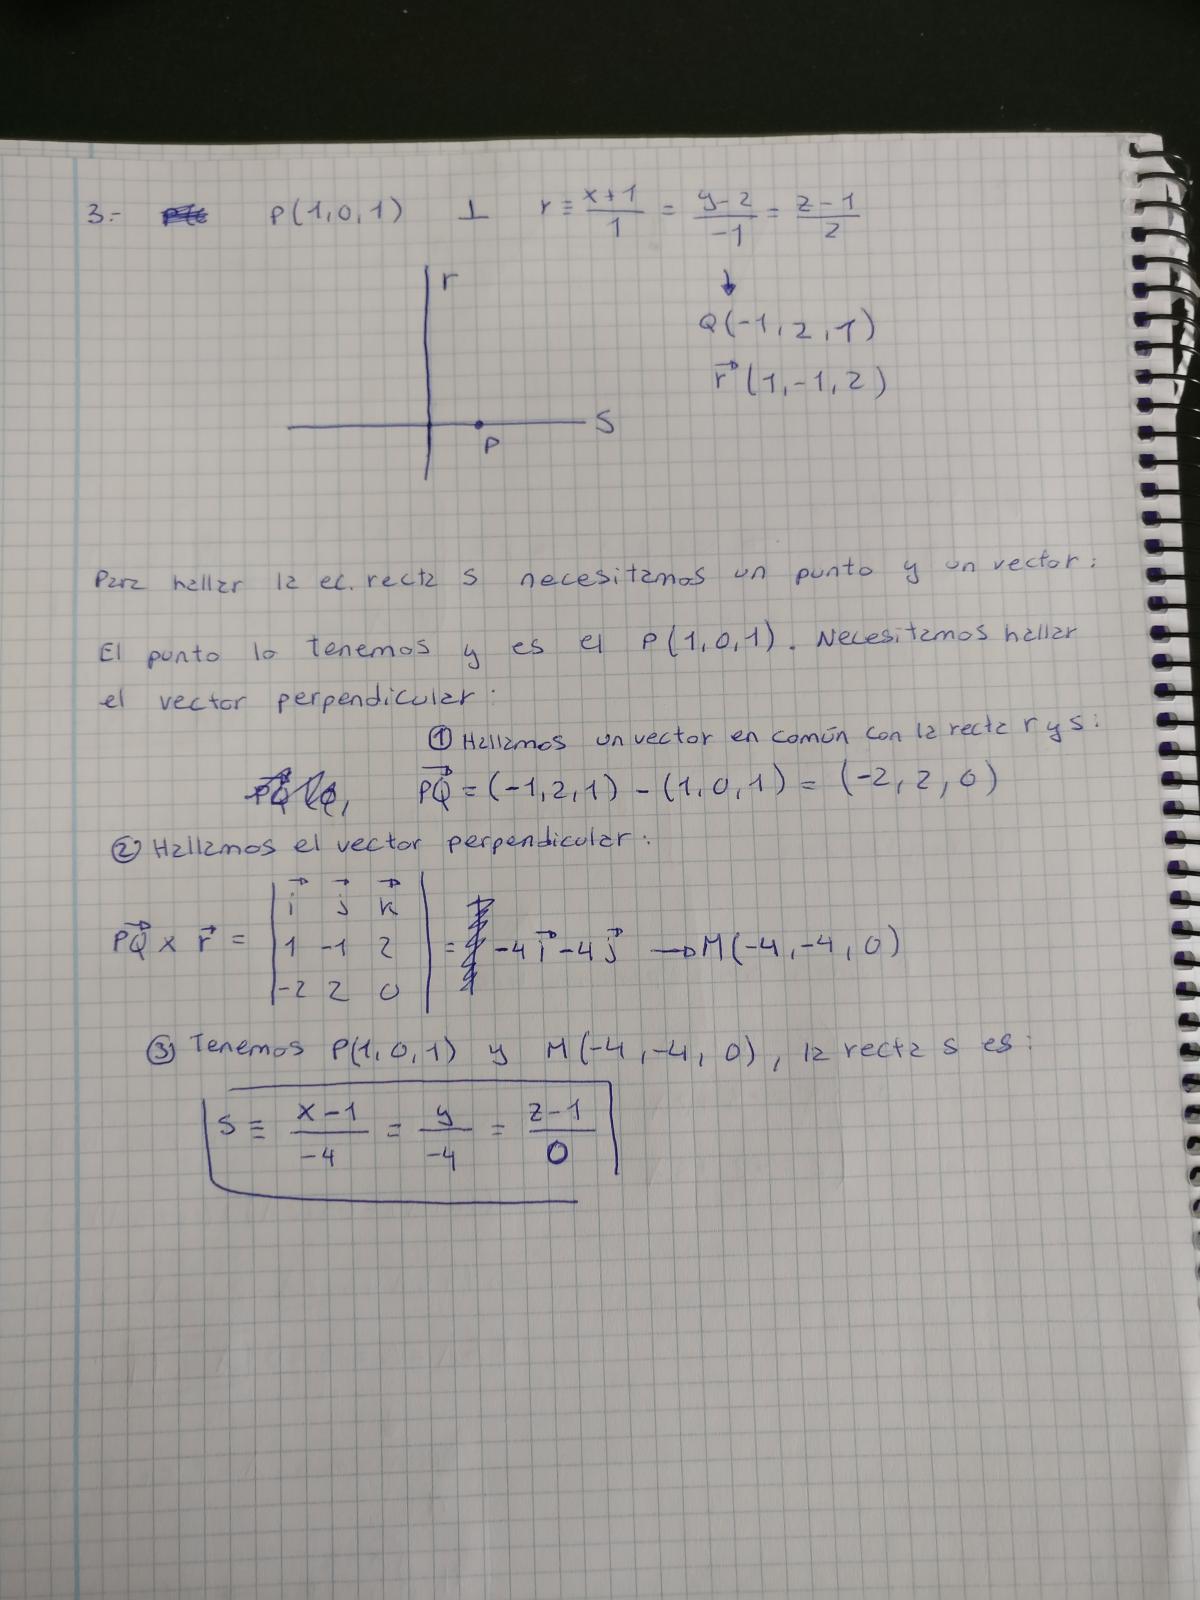 3.- P(1,0,1) ⊥ r ≡ x+1/1 = y-2/-1 = z-1/2
r
Q(-1,2,1)
r⃗(1,-1,2)
S
P
Para hallar la ec. recta s necesitamos un punto y un vector:
El punto lo tenemos y es el P(1,0,1). Necesitamos hallar
el vector perpendicular:
① Hallamos un vector en común con la recta r y s:
PQ⃗ = (-1,2,1) - (1,0,1) = (-2,2,0)
② Hallamos el vector perpendicular:
i⃗ j⃗ k⃗
PQ⃗ x r⃗ = | 1 -1 2 | = -4i⃗ -4j⃗ → M(-4,-4,0)
-2 2 0
③ Tenemos P(1,0,1) y M(-4,-4,0), la recta s es:
s ≡ x-1/-4 = y/-4 = z-1/0